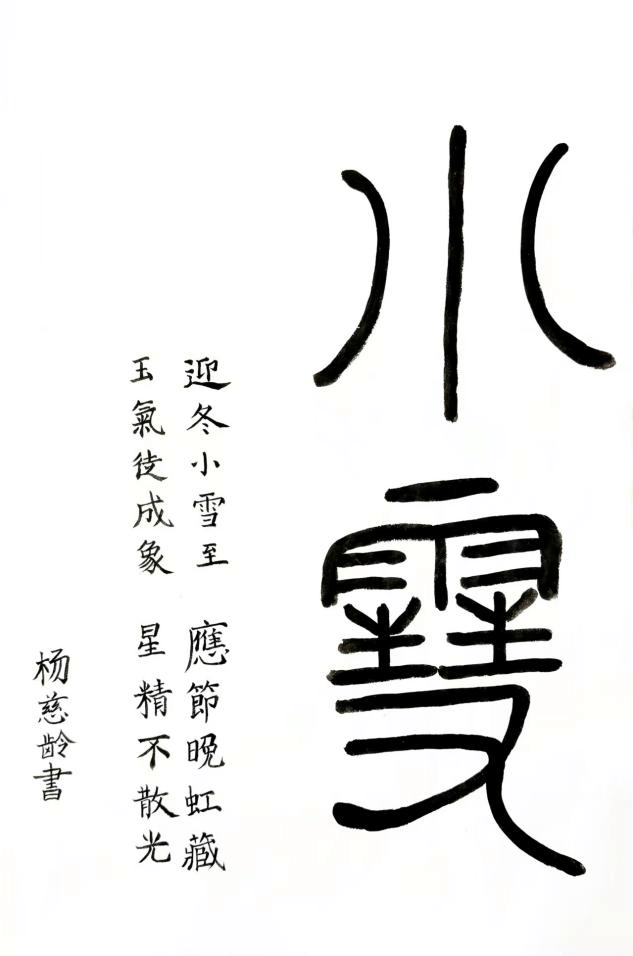 小雪
迎冬小雪至 應節晚虹藏
玉氣徒成象 星精不散光
杨慈龄書